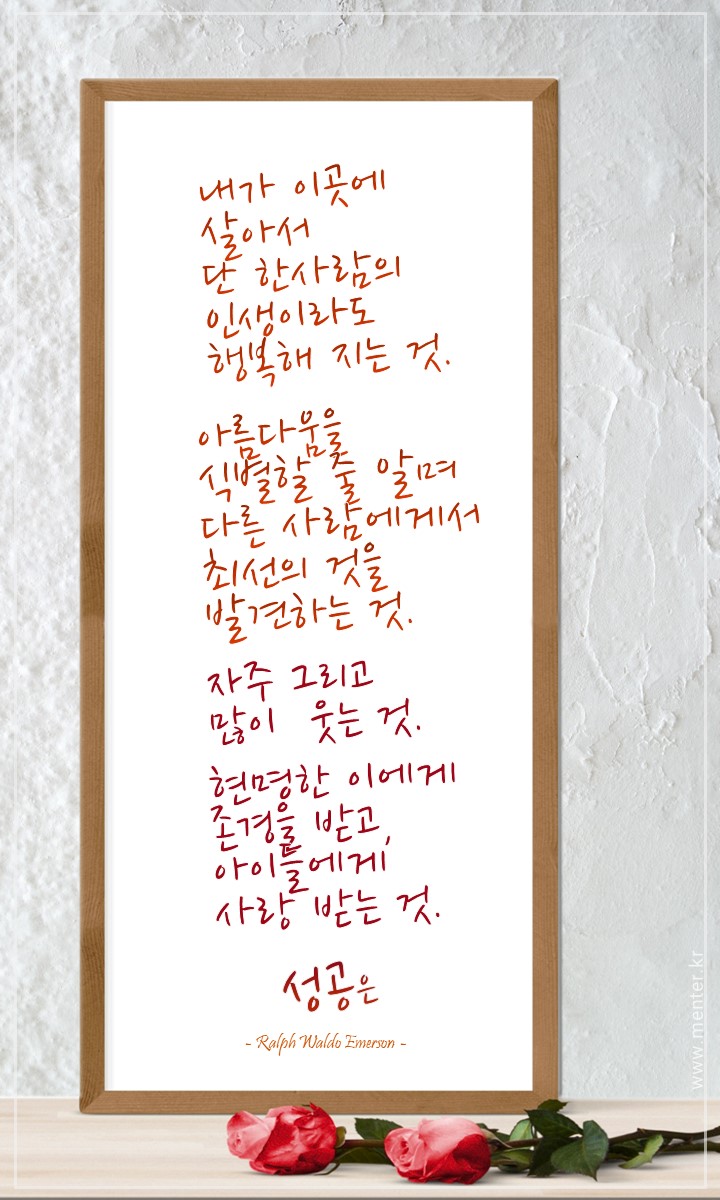 내가 이곳에
살아서
단 한사람의
인생이라도
행복해 지는 것.
아름다움을
식별할 줄 알며
다른 사람에게서
최선의 것을
발견하는 것.
자주 그리고
많이 웃는 것.
현명한 이에게
존경을 받고,
아이들에게
사랑 받는 것.
성공은
- Ralph Waldo Emerson -
www.menter.kr